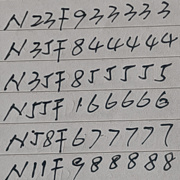 N23F933333
N35F844444
N35F855555
N55F166666
N58F677777
N11F988888